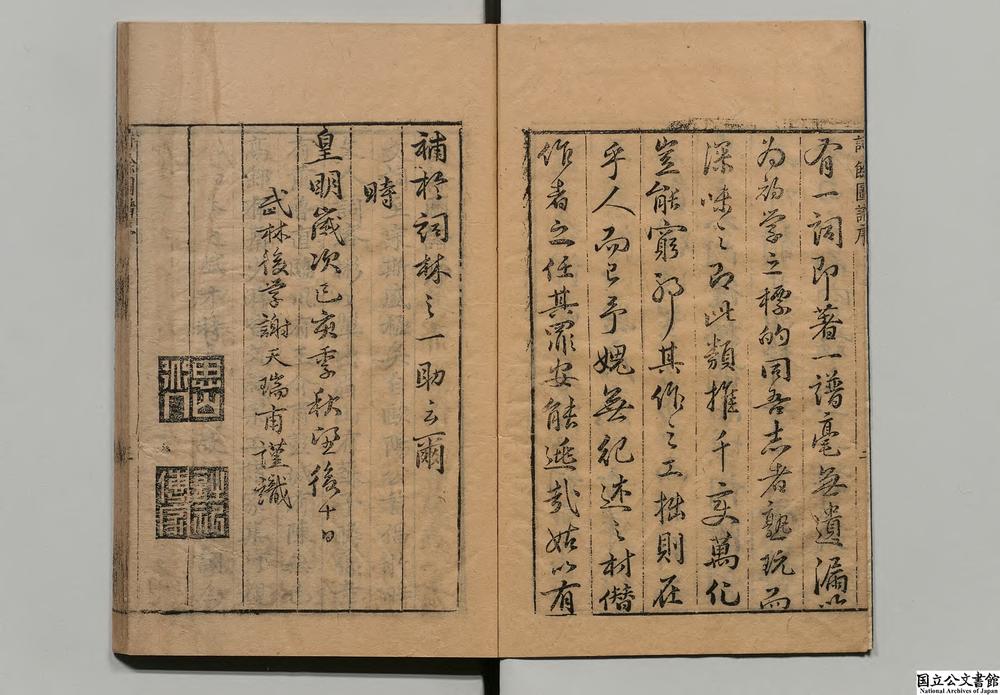 詩餘圖譜序
有一詞即著一譜毫無遺漏以
為初學之標的同吾志者熟玩而
深味之即此類推千变萬化
豈能窮耶其作之工拙則在
乎人而已予媿無紀述之材僭
作者之任其罪安能逃哉姑以有
補於詞林之一助云爾
時
皇明歲次己亥季秋望後十日
武林後学謝天瑞甫謹識
国立公文書館
National Archives of Japan